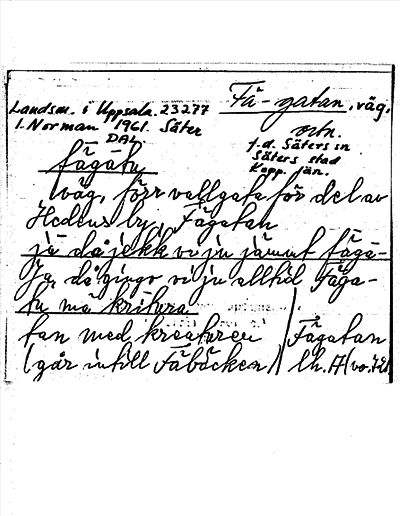 Fä-gatan, väg,
Landsm. i Uppsala. 23277
I. Norman 1961. Säter
DAL.
ortn.
f.d. Säters sn
Säters stad
Kopp. län.
fägatu
väg, förr vallgata för del av
Hedens by, Fägatan
jä då jekk vi ju jämnt fäga-
Ja, då gingo vi ju alltid Fäga-
tu mä kritura
tan med kreaturen
(går intill Fäbäcken)
Fägatan
lh. A